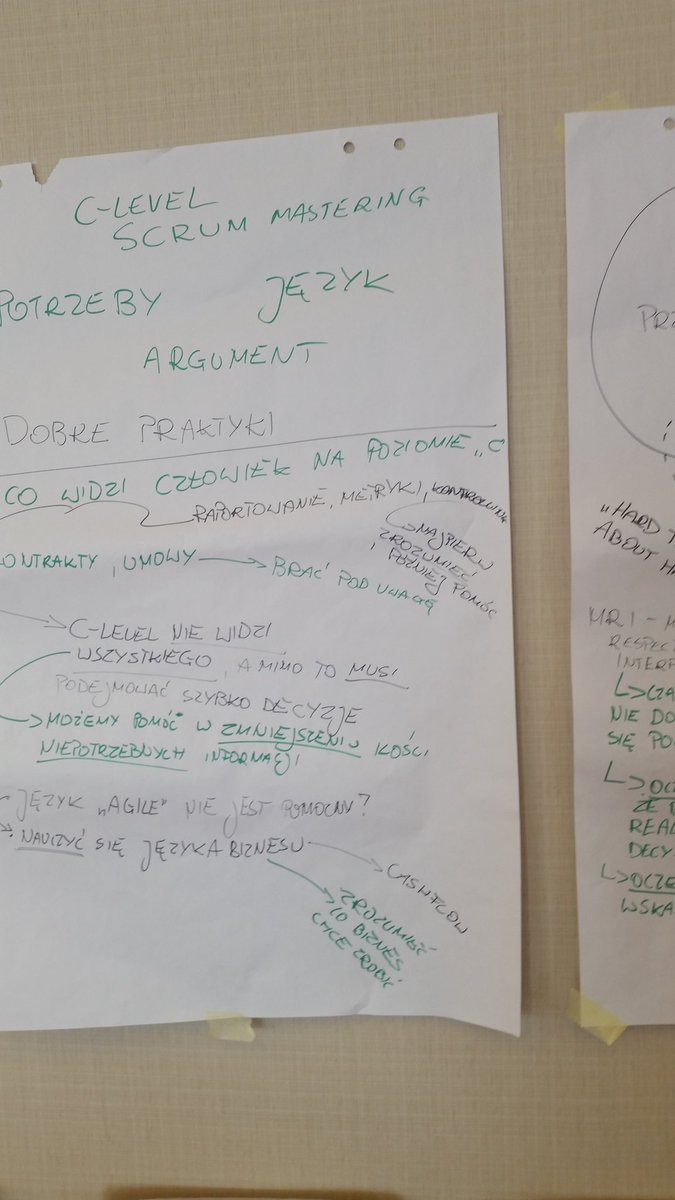 C-LEVEL
SCRUM MASTERING
POTRZEBY JĘZYK
ARGUMENT
DOBRE PRAKTYKI
CO WIDZI CZŁOWIEK NA POZIOMIE „C
RAPORTOWANIE, METRYKI, KONTROLOWANIE
NAJPIERW
ZROZUMIEĆ
I PÓŹNIEJ POMÓC
KONTRAKTY, UMOWY → BRAĆ POD UWAGĘ
C-LEVEL NIE WIDZI
WSZYSTKIEGO, A MIMO TO MUSI
PODEJMOWAĆ SZYBKO DECYZJE
MOŻEMY POMÓC W ZMNIEJSZENIU ILOŚCI
NIEPOTRZEBNYCH INFORMACJI
JĘZYK „AGILE” NIE JEST POMOCNY?
NAUCZYĆ SIĘ JĘZYKA BIZNESU
CASHFLOW
ZROZUMIEĆ
CO BIZNES
CHCE ZROBIĆ
PRZ
„HARD
ABOUT HA
MRI -
RESPEC
INTERP
NIE DO
SIĘ PO
ŻE
REAL
DECY
OCZE
WSKA